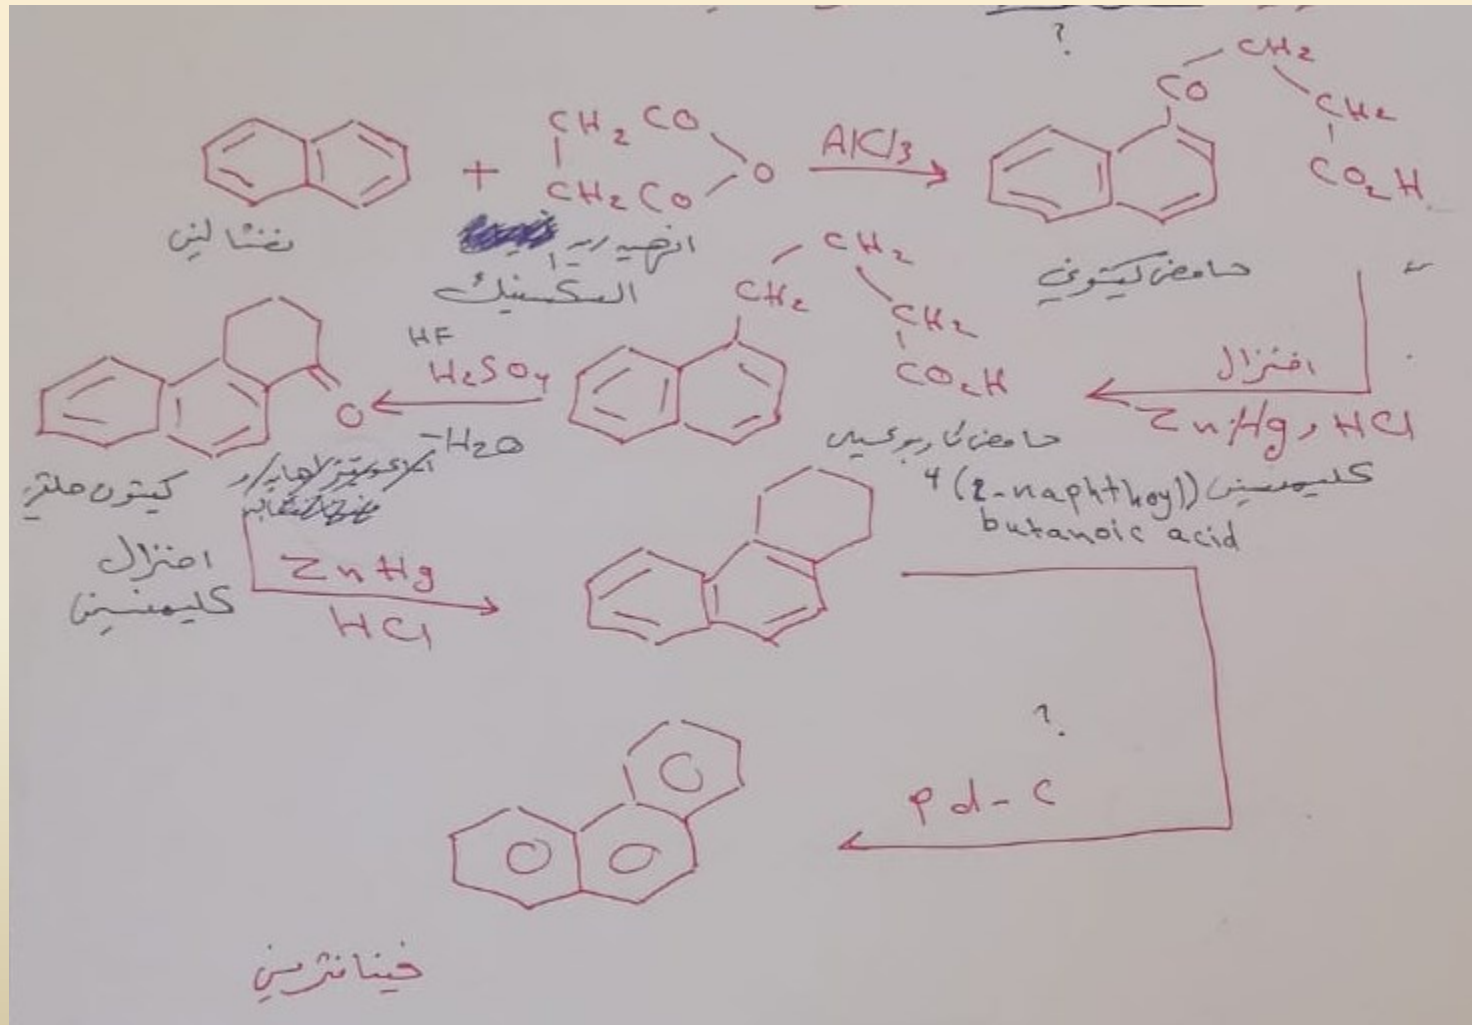 ?
CH₂ CO
CH₂ CO
O
+
AlCl₃
CO
CH₂
CH₂
CO₂H
نفثالين
انهيدريد
السكسينيك
حامض كيتوني
CH₂
CH₂
CH₂
CO₂H
اختزال
Zn/Hg, HCl
كليمنسن
حامض كاربوكسيلي
4 (2-naphthoyl)
butanoic acid
HF
H₂SO₄
-H₂O
O
كيتون حلقي
اختزال
كليمنسن
Zn Hg
HCl
?
pd-C
فينانثرين